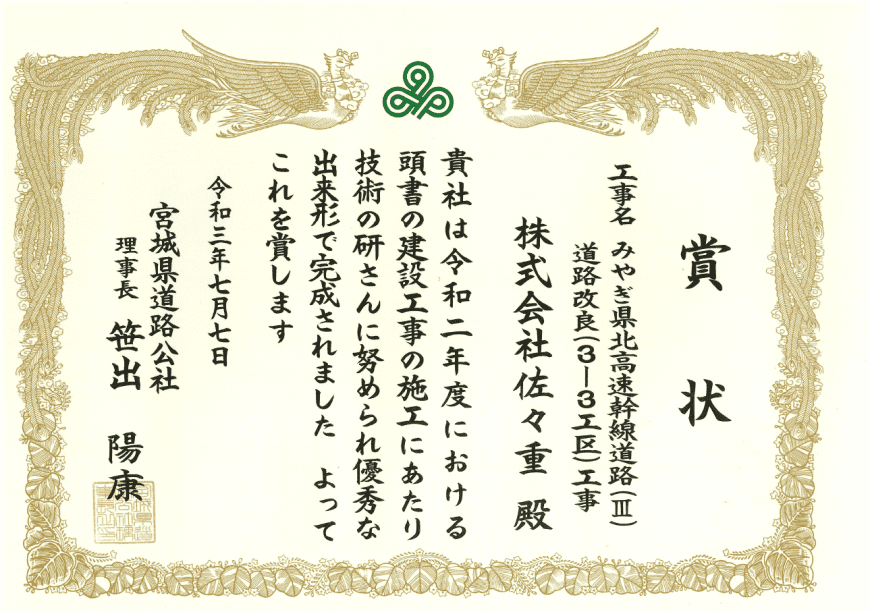 賞状
工事名 みやぎ県北高速幹線道路(Ⅲ)
道路改良(3―3工区)工事
株式会社佐々重 殿
貴社は令和二年度における
頭書の建設工事の施工にあたり
技術の研さんに努められ優秀な
出来形で完成されました よって
これを賞します
令和三年七月七日
宮城県道路公社
理事長 笹出 陽康